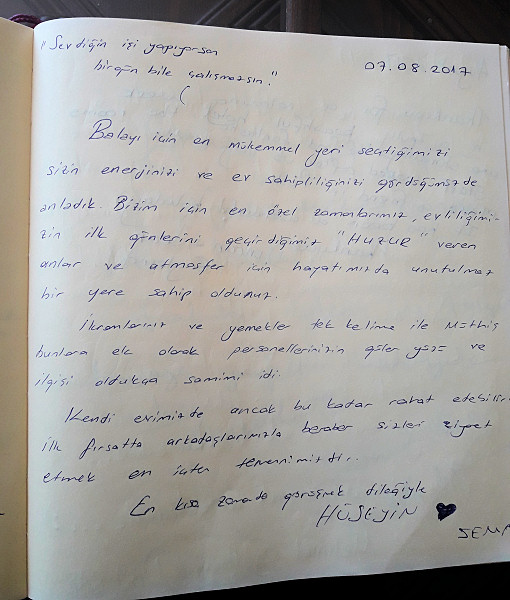 "Sevdiğin işi yapıyorsan
birgün bile çalışmazsın."
07.08.2017
Balayı için en mükemmel yeri seçtiğimizi
sizin enerjinizi ve ev sahipliliğinizi gördüğümüzde
anladık. Bizim için en özel zamanlarımız, evliliğimi-
zin ilk günlerini geçirdiğimiz "HUZUR" veren
anlar ve atmosfer için hayatımızda unutulmaz
bir yere sahip oldunuz.
İkramlarınız ve yemekler tek kelime ile Müthiş
bunlara ek olarak personellerinizin güler yüzü ve
ilgisi oldukça samimi idi.
Kendi evimizde ancak bu kadar rahat edebilir
ilk fırsatta arkadaşlarımızla beraber sizleri ziyaret
etmek en içten temennimizdir..
En kısa zamanda görüşmek dileğiyle
HÜSEYİN ♥